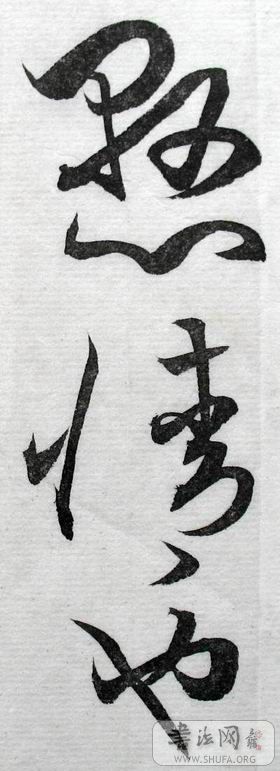 懸情也
書法网
WWW.SHUFA.ORG